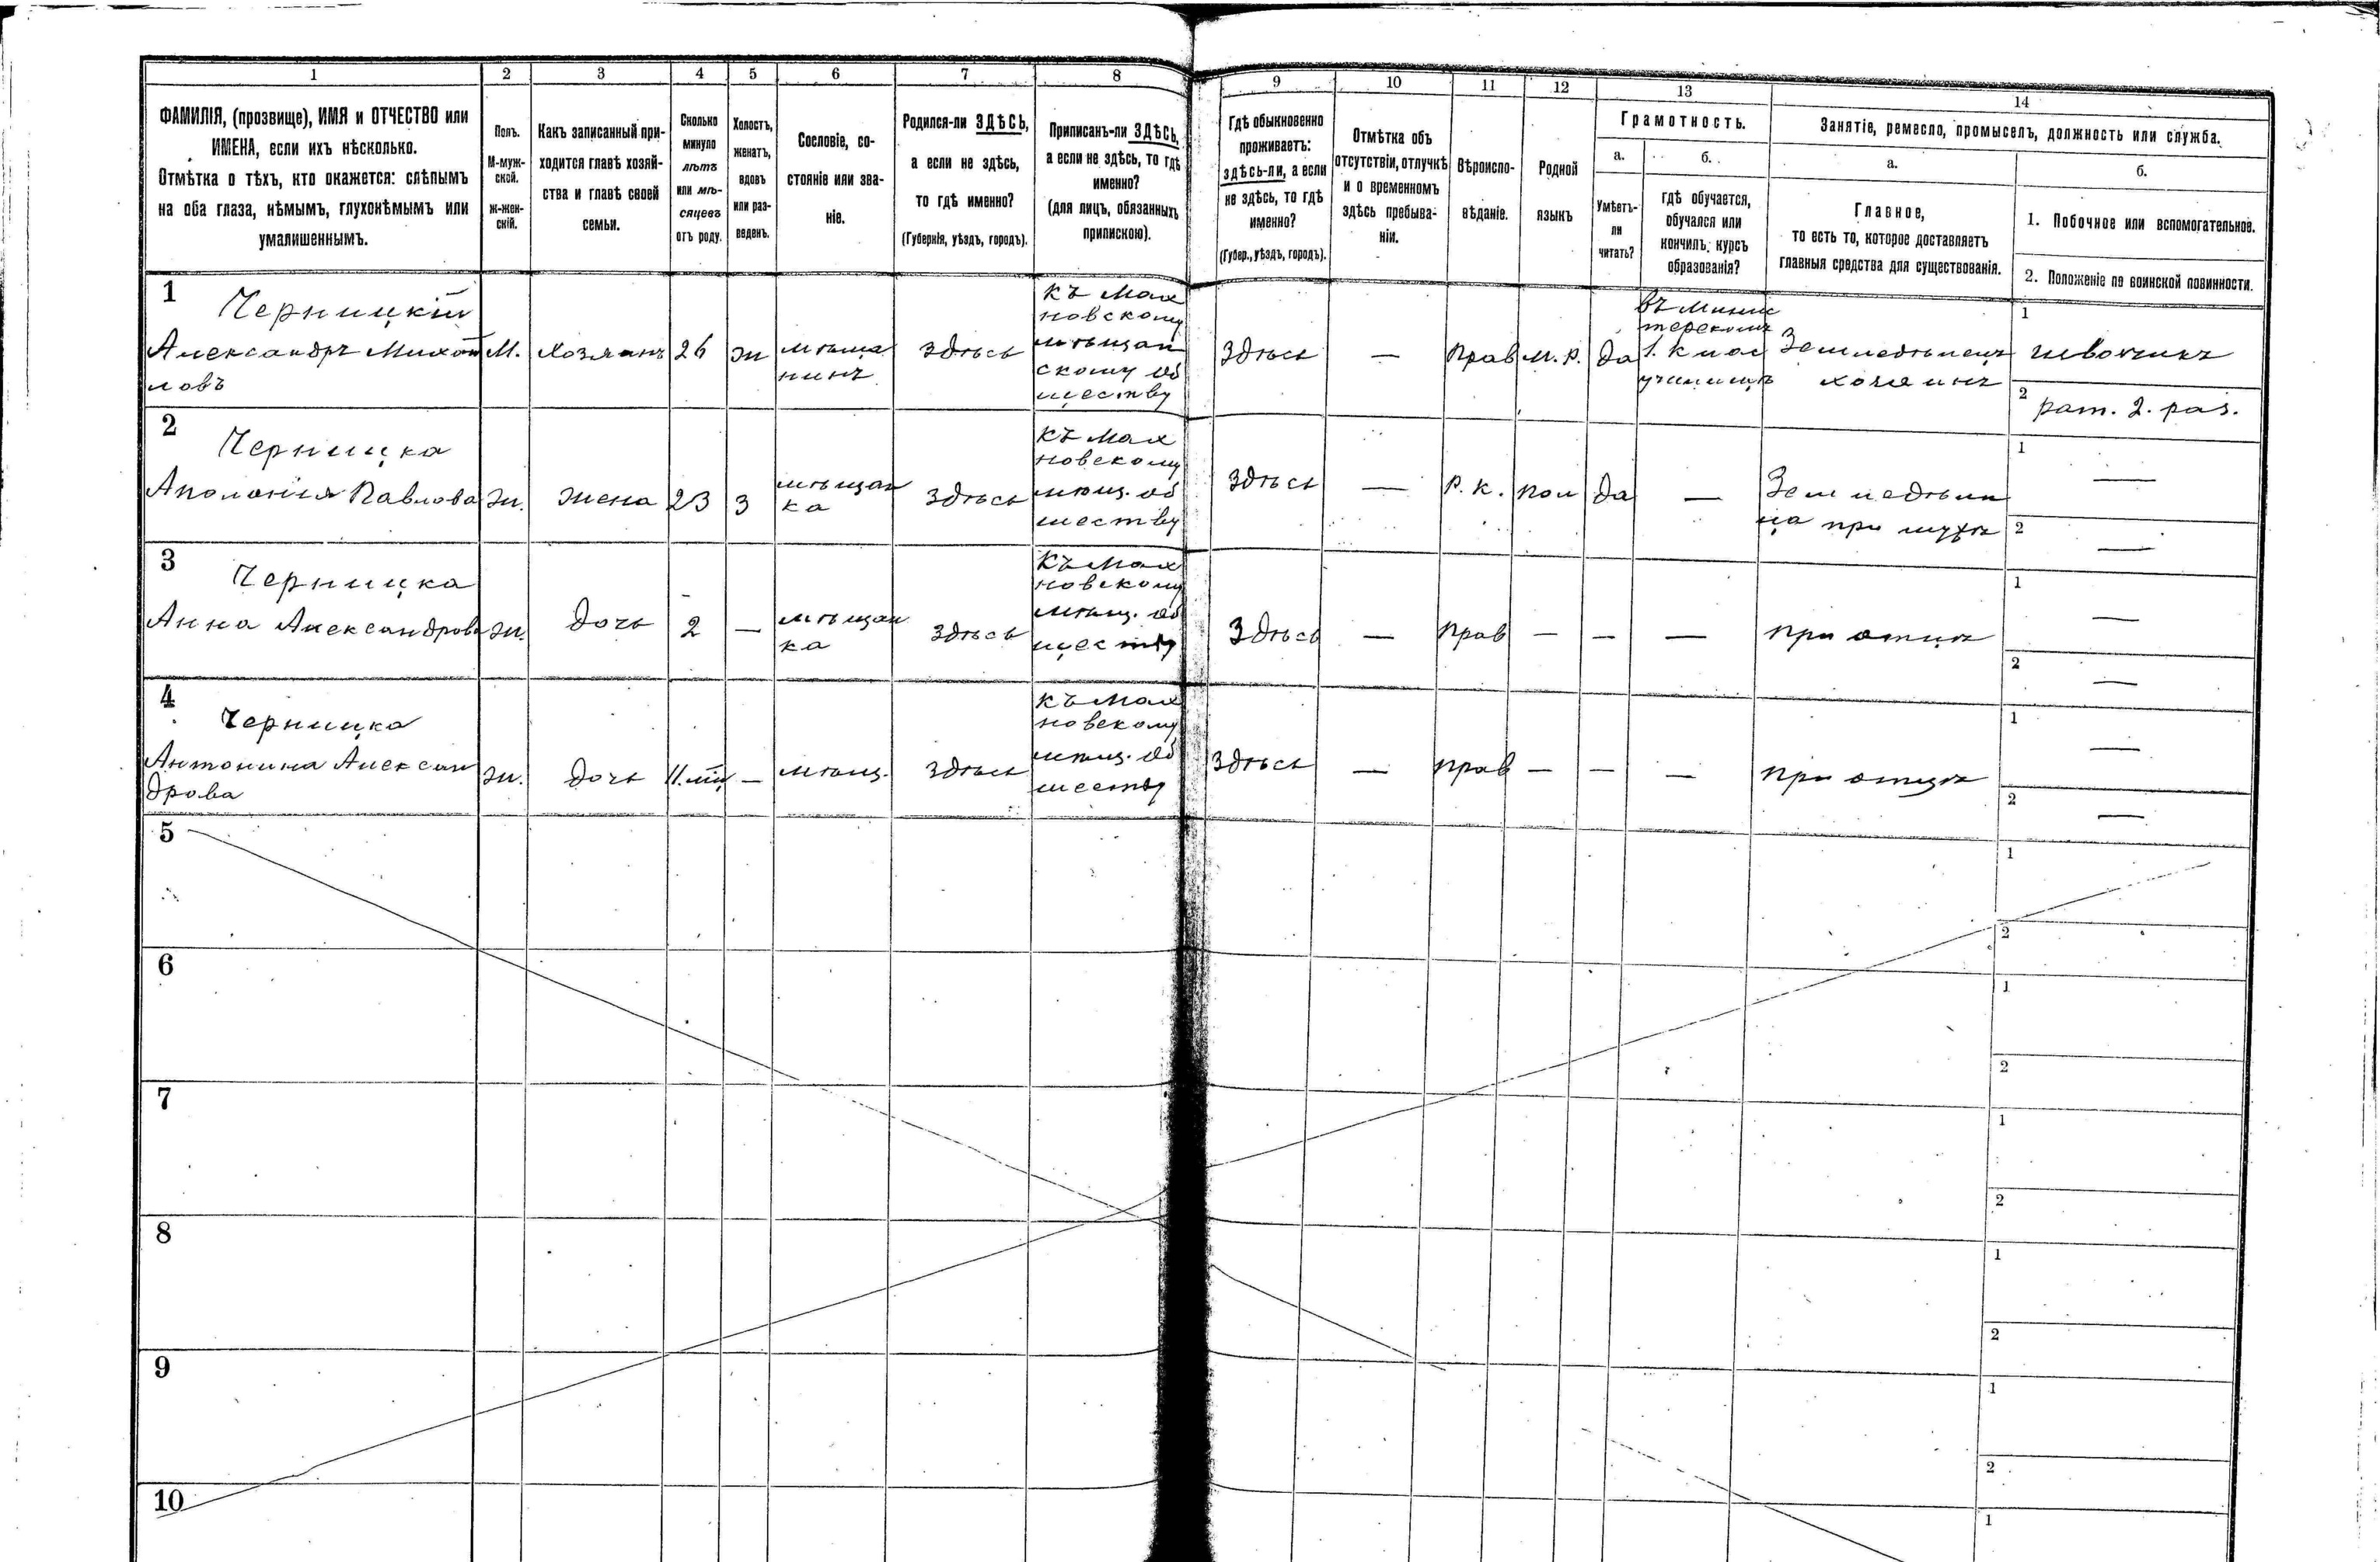 1 2 3 4 5 6 7 8 9 10 11 12 13 14
ФАМИЛІЯ, (прозвище), ИМЯ и ОТЧЕСТВО или
ИМЕНА, если ихъ нѣсколько.
Отмѣтка о тѣхъ, кто окажется: слѣпымъ
на оба глаза, нѣмымъ, глухонѣмымъ или
умалишеннымъ.
Полъ.
М-муж-
ской.
ж-жен-
скій.
Какъ записанный при-
ходится главѣ хозяй-
ства и главѣ своей
семьи.
Сколько
минуло
лѣтъ
или мѣ-
сяцевъ
отъ роду.
Холостъ,
женатъ,
вдовъ
или раз-
веденъ.
Сословіе, со-
стояніе или зва-
ніе.
Родился-ли ЗДѢСЬ,
а если не здѣсь,
то гдѣ именно?
(Губернія, уѣздъ, городъ).
Приписанъ-ли ЗДѢСЬ,
а если не здѣсь, то гдѣ
именно?
(для лицъ, обязанныхъ
припискою).
Гдѣ обыкновенно
проживаетъ:
здѣсь-ли, а если
не здѣсь, то гдѣ
именно?
(Губер., уѣздъ, городъ).
Отмѣтка объ
отсутствіи, отлучкѣ
и о временномъ
здѣсь пребыва-
ніи.
Вѣроиспо-
вѣданіе.
Родной
языкъ
Грамотность.
а.
Умѣетъ-
ли
читать?
б.
гдѣ обучается,
обучался или
кончилъ курсъ
образованія?
Занятіе, ремесло, промыселъ, должность или служба.
а.
Главное,
то есть то, которое доставляетъ
главныя средства для существованія.
б.
1. Побочное или вспомогательное.
2. Положеніе по воинской повинности.
1
Черницкій
Александръ Михай
ловъ
М.
хозяинъ
26
ж
мѣща
нинъ
здѣсь
къ Мах
новскому
мѣщан
скому об
ществу
здѣсь
—
прав
м. р.
да
въ Минис
терскомъ
1. клас
училищѣ
Земледѣлецъ
хозяинъ
1
2 рат. 2. раз.
2
Черницка
Аполонія Павлова
ж.
жена
23
з
мѣщан
ка
здѣсь
къ Мах
новскому
мѣщ. об
ществу
здѣсь
—
р. к.
пол
да
—
Земледѣли
ца при мужѣ
1 —
2 —
3
Черницка
Анна Александрова
ж.
дочь
2
—
мѣщан
ка
здѣсь
къ Мах
новскому
мѣщ. об
ществу
здѣсь
—
прав
—
—
—
при отцѣ
1 —
2 —
4
Черницка
Антонина Алексан
дрова
ж.
дочь
11. мц
—
мѣщ.
здѣсь
къ Мах
новскому
мѣщ. об
ществу
здѣсь
—
прав
—
—
—
при отцѣ
1 —
2 —
5
1
2
6
1
2
7
1
2
8
1
2
9
1
2
10
1